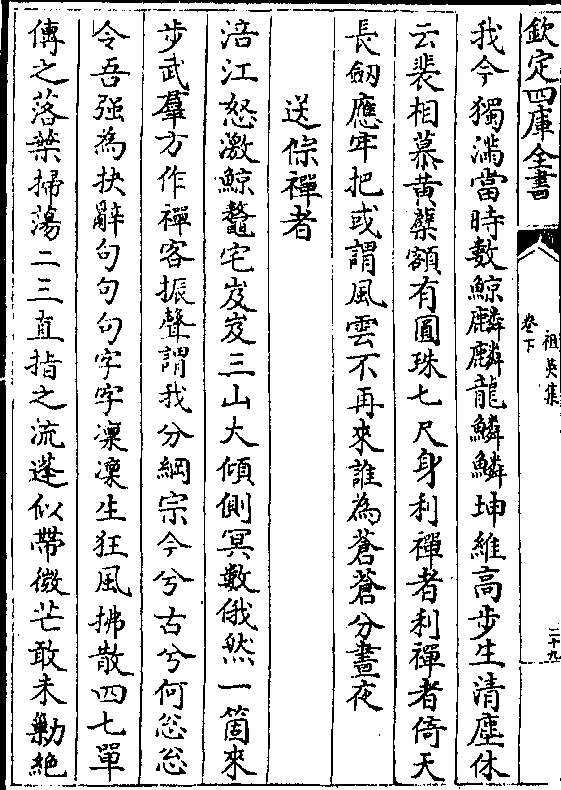 欽定四庫全書
祖英集
卷下
二十九
我今獨滿當時數鯨麟麟龍鱗鱗坤維高步生清塵休
云裴相慕黃蘗額有圓珠七尺身利禪者利禪者倚天
長劒應牢把或謂風雲不再來誰為蒼蒼分晝夜
送禪者
涪江怒激鯨鼇宅岌岌三山大傾側冥數俄然一箇來
步武羣方作禪客振聲謂我分綱宗今兮古兮何忩忩
令吾强為抉辭句句句字字凜凜生狂風拂散四七單
傳之落葉掃蕩二三直指之流蓬似帶微芒敢未勦絶